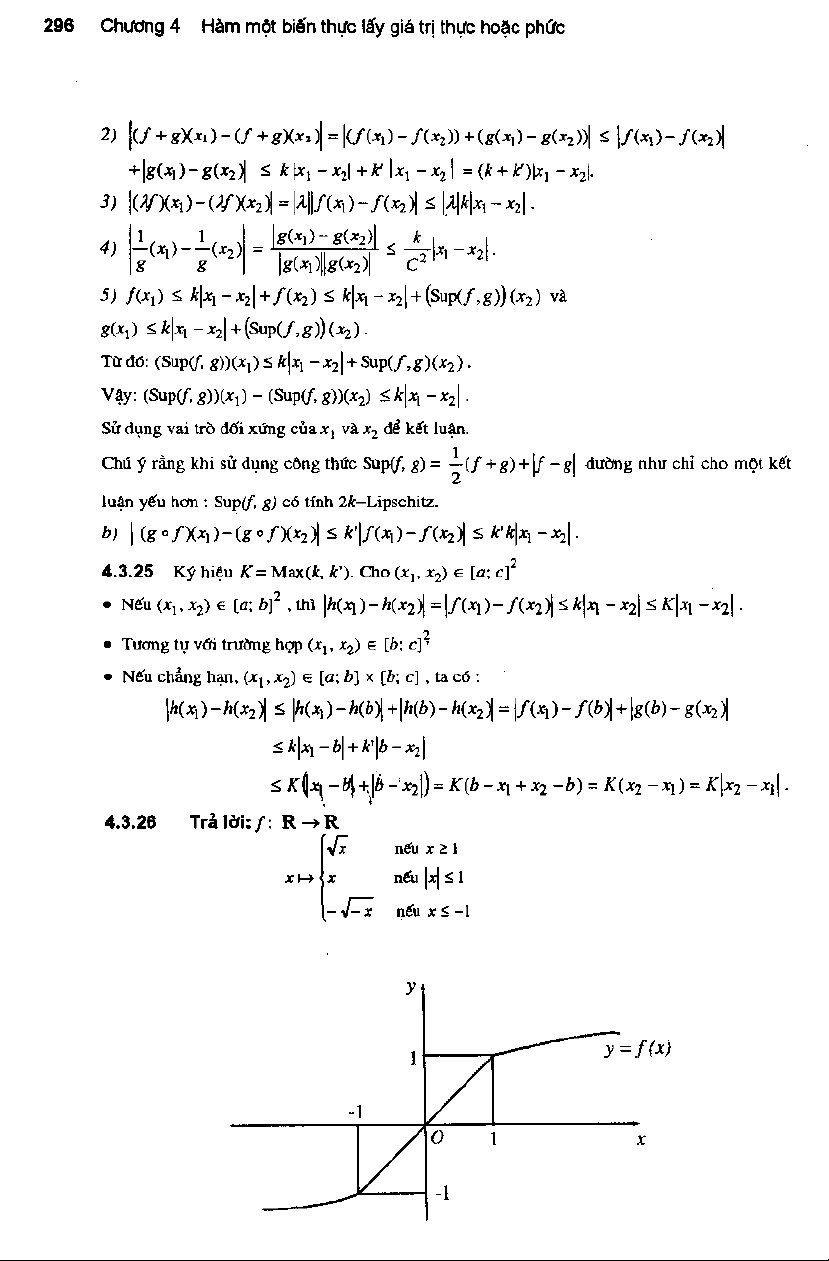 296 Chương 4 Hàm một biến thực lấy giá trị thực hoặc phức
2) |(f + g)(x₁) – (f + g)(x₂)| = |(f(x₁) – f(x₂)) + (g(x₁) – g(x₂))| ≤ |f(x₁) – f(x₂)|
+|g(x₁) – g(x₂)| ≤ k|x₁ – x₂| + k' |x₁ – x₂| = (k + k')|x₁ – x₂|.
3) |(λf)(x₁) – (λf)(x₂)| = |λ||f(x₁) – f(x₂)| ≤ |λ|k|x₁ – x₂|.
4) |1/g (x₁) – 1/g (x₂)| = |g(x₁) – g(x₂)| / |g(x₁)||g(x₂)| ≤ k/C² |x₁ – x₂|.
5) f(x₁) ≤ k|x₁ – x₂| + f(x₂) ≤ k|x₁ – x₂| + (Sup(f,g))(x₂) và
g(x₁) ≤ k|x₁ – x₂| + (Sup(f,g))(x₂).
Từ đó: (Sup(f, g))(x₁) ≤ k|x₁ – x₂| + Sup(f,g)(x₂).
Vậy: (Sup(f, g))(x₁) – (Sup(f, g))(x₂) ≤ k|x₁ – x₂|.
Sử dụng vai trò đối xứng của x₁ và x₂ để kết luận.
Chú ý rằng khi sử dụng công thức Sup(f, g) = 1/2 (f + g) + |f – g| dường như chỉ cho một kết
luận yếu hơn : Sup(f, g) có tính 2k–Lipschitz.
b) | (g ∘ f)(x₁) – (g ∘ f)(x₂)| ≤ k'|f(x₁) – f(x₂)| ≤ k'k|x₁ – x₂|.
4.3.25 Ký hiệu K = Max(k, k'). Cho (x₁, x₂) ∈ [a; c]²
• Nếu (x₁, x₂) ∈ [a; b]² , thì |h(x₁) – h(x₂)| = |f(x₁) – f(x₂)| ≤ k|x₁ – x₂| ≤ K|x₁ – x₂|.
• Tương tự với trường hợp (x₁, x₂) ∈ [b; c]²
• Nếu chẳng hạn, (x₁, x₂) ∈ [a; b] × [b; c] , ta có :
|h(x₁) – h(x₂)| ≤ |h(x₁) – h(b)| + |h(b) – h(x₂)| = |f(x₁) – f(b)| + |g(b) – g(x₂)|
≤ k|x₁ – b| + k'|b – x₂|
≤ K(|x₁ – b| + |b – x₂|) = K(b – x₁ + x₂ – b) = K(x₂ – x₁) = K|x₂ – x₁|.
4.3.26 Trả lời: f : R → R
√x nếu x ≥ 1
x ↦ { x nếu |x| ≤ 1
–√–x nếu x ≤ –1
y
1
y = f(x)
-1
O 1 x
-1